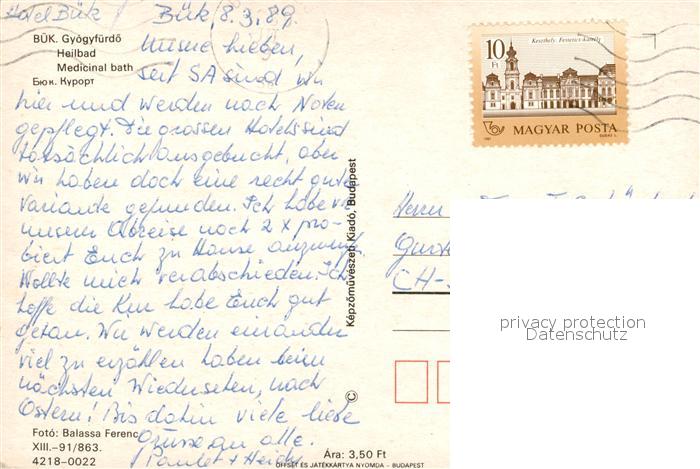 Hotel Bük Bük 8.3.89.
BÜK. Gyógyfürdő
Heilbad
Medicinal bath
Бюк. Курорт
Meine Lieben,
seit SA sind wir
hier und werden nach Noten
gepflegt. Die grossen Hotels sind
tatsächlich ausgebucht, aber
wir haben doch eine recht gute
Variante gefunden. Ich habe vor
unserer Abreise noch 2 x pro-
biert Euch zu Hause anzurufen
Wollte mich verabschieden. Ich
hoffe die Kur habe Euch gut
getan. Wir werden einander
viel zu erzählen haben beim
nächsten Wiedersehen, nach
Ostern! Bis dahin viele liebe
Grüsse an alle.
+ Heidy
Fotó: Balassa Ferenc
XIII.–91/863.
4218-0022
Ára: 3,50 Ft
OFFSET ÉS JÁTÉKKÁRTYA NYOMDA - BUDAPEST
© Képzőművészeti Kiadó, Budapest
10 Ft
Keszthely. Festetics-kastély
MAGYAR POSTA
Herrn
CH-
privacy protection
Datenschutz